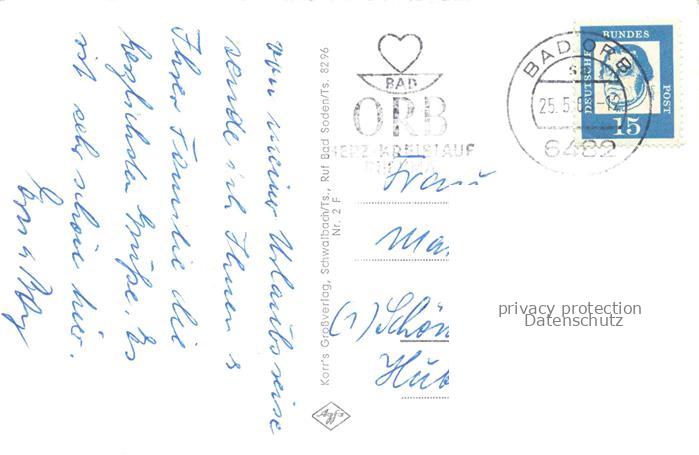 von meiner Urlaubsreise
sende ich Ihnen &
Ihrer Familie die
herzlichsten Grüße. Es
ist sehr schön hier.
Korr's Großverlag, Schwalbach/Ts., Ruf Bad Soden/Ts. 8296
Nr. 2 F
Agfa
BAD
ORB
HERZ-KREISLAUF
BAD ORB
25.5.
6482
DEUTSCHE
BUNDES
POST
15
Frau
Ma
(1) Schön
Hub
privacy protection
Datenschutz